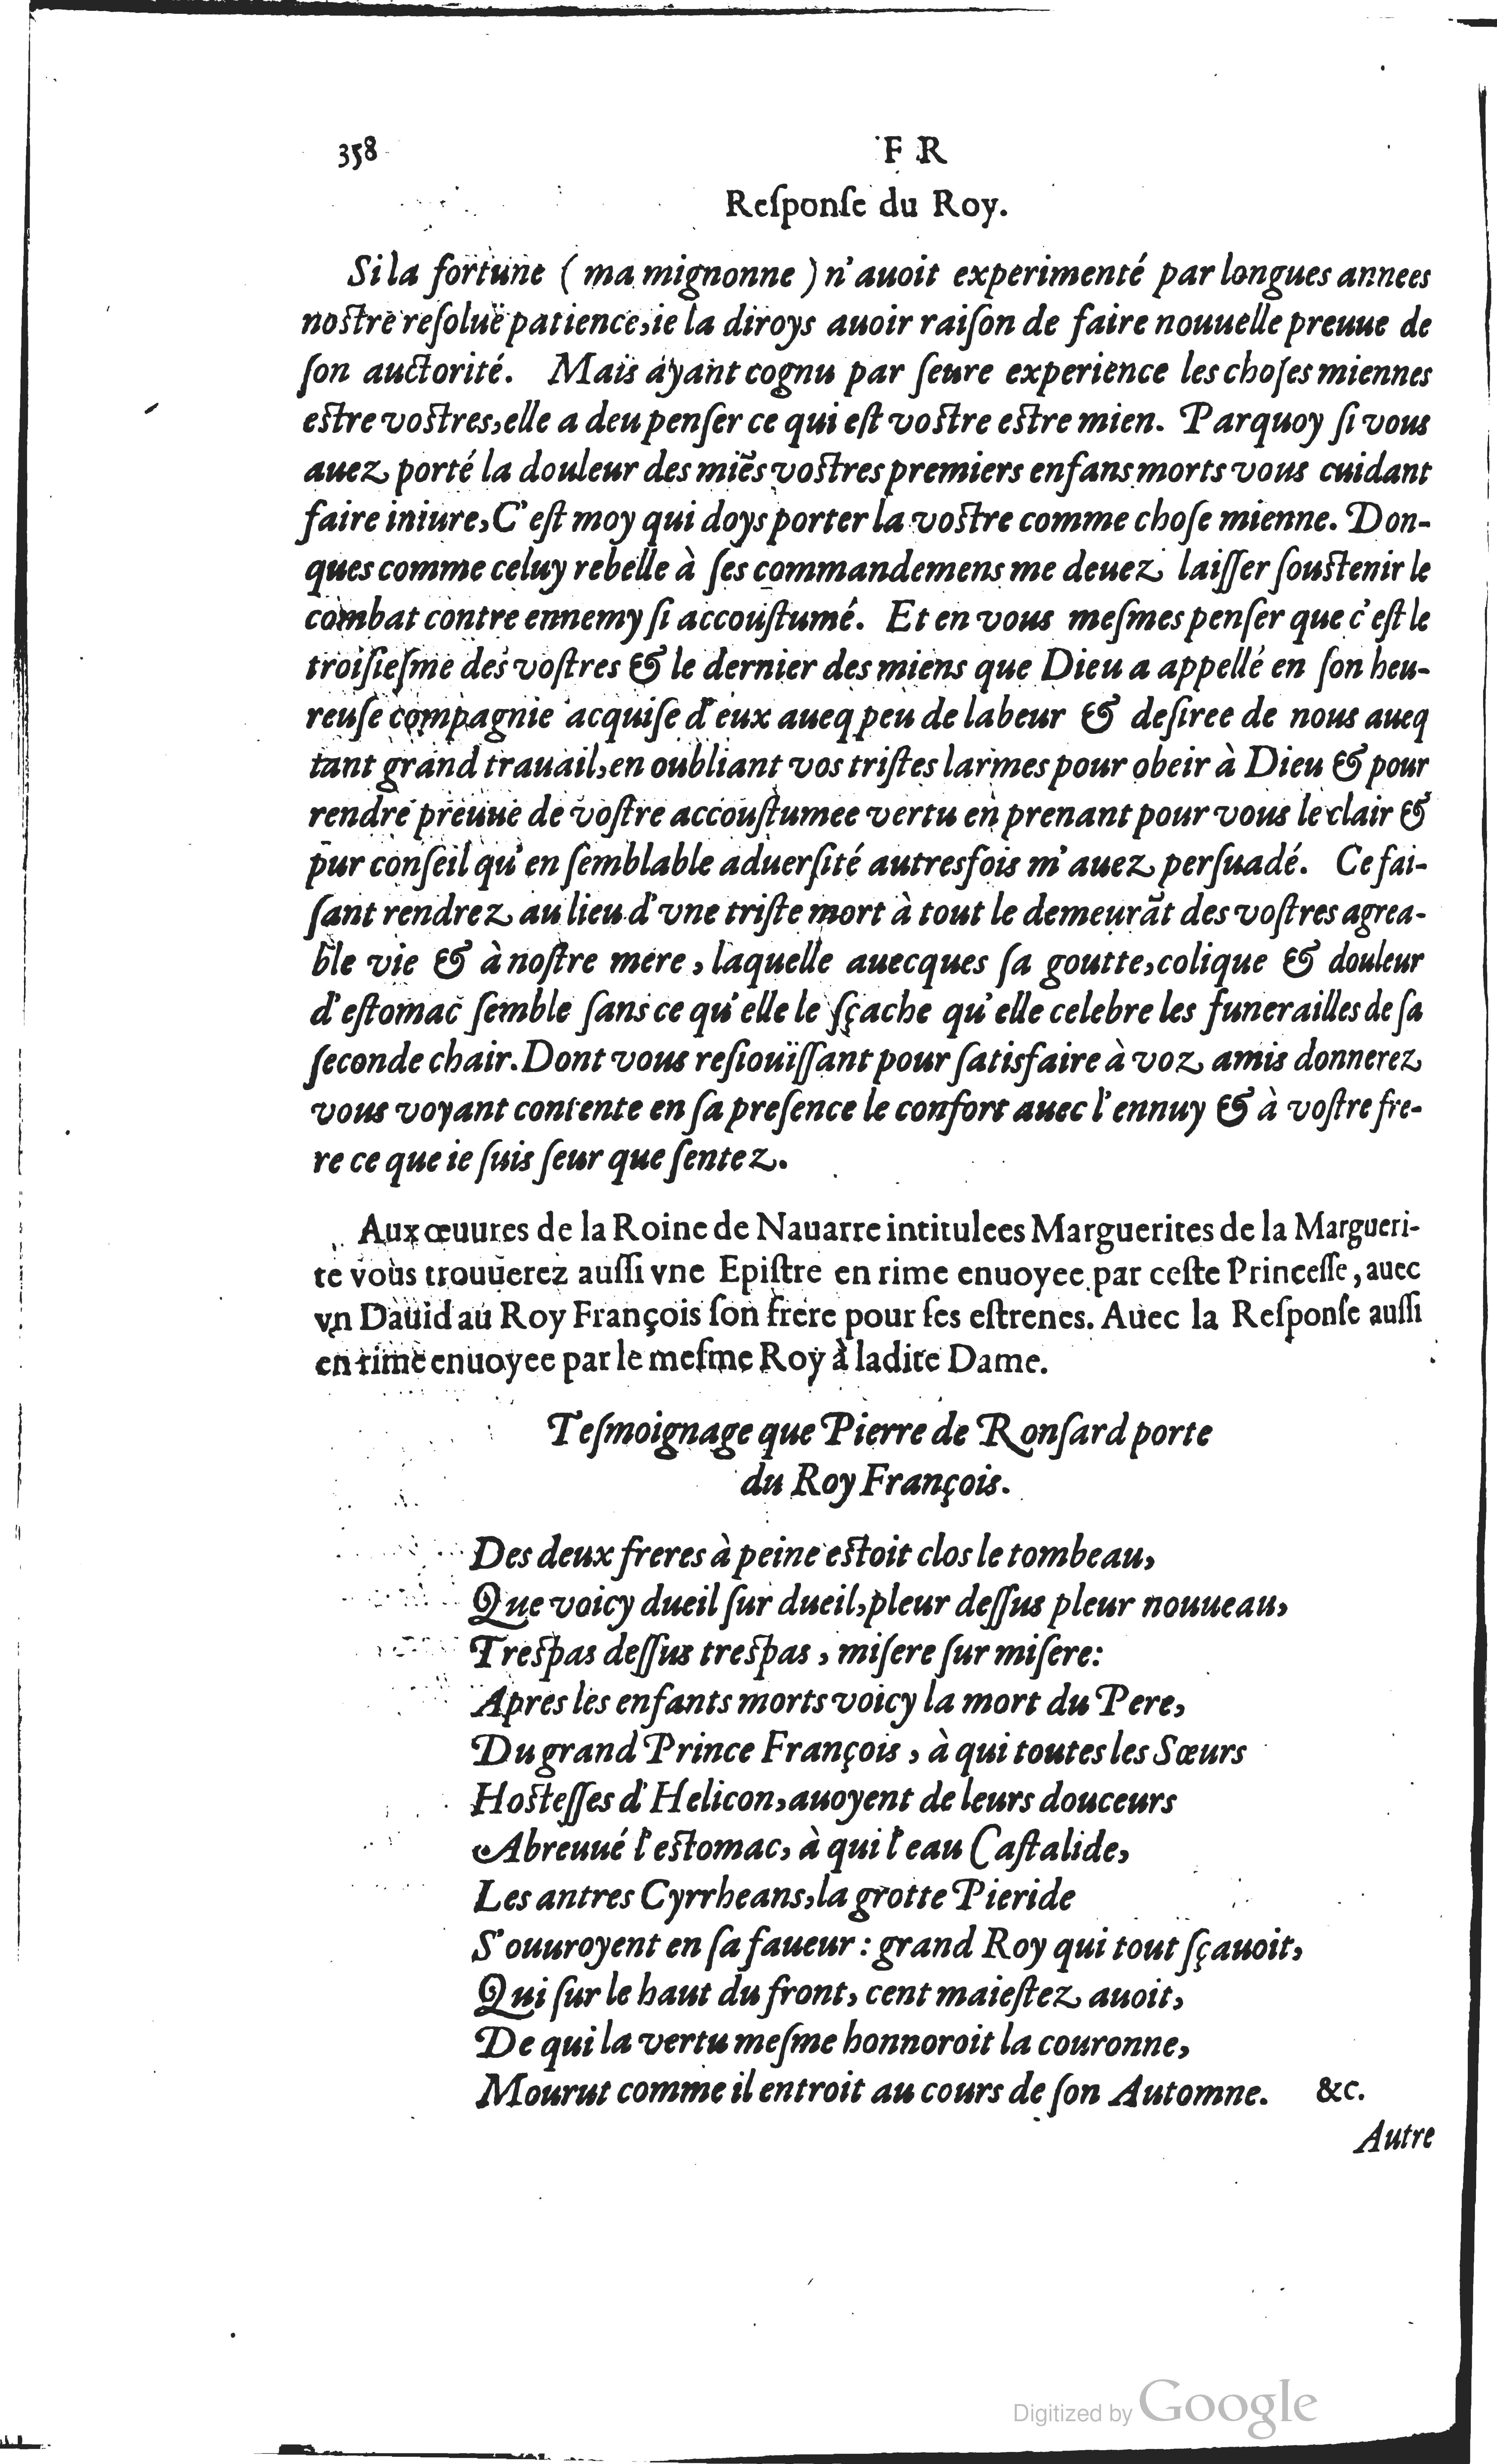 358
F R
Reſponſe du Roy.
Si la fortune ( ma mignonne ) n'auoit experimenté par longues annees
noſtre reſoluë patience, ie la diroys auoir raiſon de faire nouuelle preuue de
ſon auctorité. Mais ayant cognu par ſeure experience les choſes miennes
eſtre voſtres, elle a deu penſer ce qui eſt voſtre eſtre mien. Parquoy ſi vous
auez porté la douleur des miẽs voſtres premiers enfans morts vous cuidant
faire iniure, C'eſt moy qui doys porter la voſtre comme choſe mienne. Don-
ques comme celuy rebelle à ſes commandemens me deuez laiſſer ſouſtenir le
combat contre ennemy ſi accouſtumé. Et en vous meſmes penſer que c'eſt le
troiſieſme des voſtres & le dernier des miens que Dieu a appellé en ſon heu-
reuſe compagnie acquiſe d'eux aueq peu de labeur & deſiree de nous aueq
tant grand trauail, en oubliant vos triſtes larmes pour obeir à Dieu & pour
rendre preuue de voſtre accouſtumee vertu en prenant pour vous le clair &
pur conſeil qu'en ſemblable aduerſité autresfois m'auez perſuadé. Ce fai-
ſant rendrez au lieu d'vne triſte mort à tout le demeurãt des voſtres agrea-
ble vie & à noſtre mere, laquelle auecques ſa goutte, colique & douleur
d'eſtomac ſemble ſans ce qu'elle le ſçache qu'elle celebre les funerailles de ſa
ſeconde chair. Dont vous reſiouïſſant pour ſatisfaire à voz amis donnerez
vous voyant contente en ſa preſence le confort auec l'ennuy & à voſtre fre-
re ce que ie ſuis ſeur que ſentez.
Aux œuures de la Roine de Nauarre intitulees Marguerites de la Margueri-
te vous trouuerez auſſi vne Epiſtre en rime enuoyee par ceſte Princeſſe, auec
vn Dauid au Roy François ſon frere pour ſes eſtrenes. Auec la Reſponſe auſſi
en rime enuoyee par le meſme Roy à ladite Dame.
Teſmoignage que Pierre de Ronſard porte
du Roy François.
Des deux freres à peine eſtoit clos le tombeau,
Que voicy dueil ſur dueil, pleur deſſus pleur nouueau,
Treſpas deſſus treſpas, miſere ſur miſere:
Apres les enfants morts voicy la mort du Pere,
Du grand Prince François, à qui toutes les Sœurs
Hoſteſſes d'Helicon, auoyent de leurs douceurs
Abreuué l'eſtomac, à qui l'eau Caſtalide,
Les antres Cyrrheans, la grotte Pieride
S'ouuroyent en ſa faueur: grand Roy qui tout ſçauoit,
Qui ſur le haut du front, cent maieſtez auoit,
De qui la vertu meſme honnoroit la couronne,
Mourut comme il entroit au cours de ſon Automne. &c.
Autre
Digitized by Google